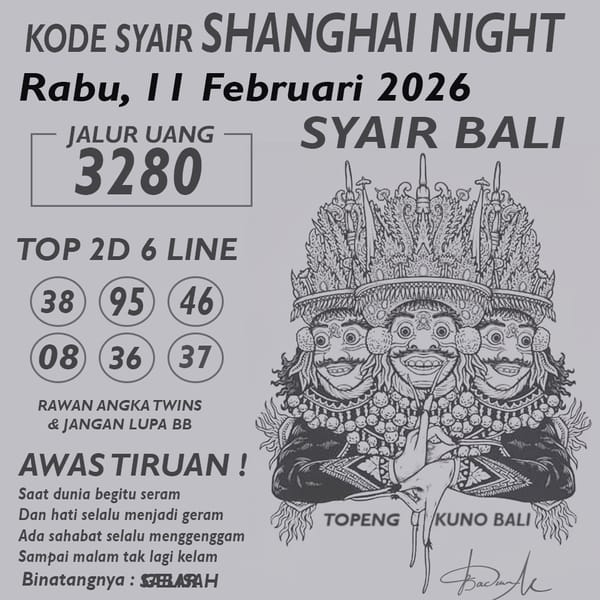 KODE SYAIR SHANGHAI NIGHT
Rabu, 11 Februari 2026
SYAIR BALI
JALUR UANG
3280
TOP 2D 6 LINE
38 95 46
08 36 37
RAWAN ANGKA TWINS
& JANGAN LUPA BB
AWAS TIRUAN !
Saat dunia begitu seram
Dan hati selalu menjadi geram
Ada sahabat selalu menggenggam
Sampai malam tak lagi kelam
Binatangnya :
TOPENG KUNO BALI